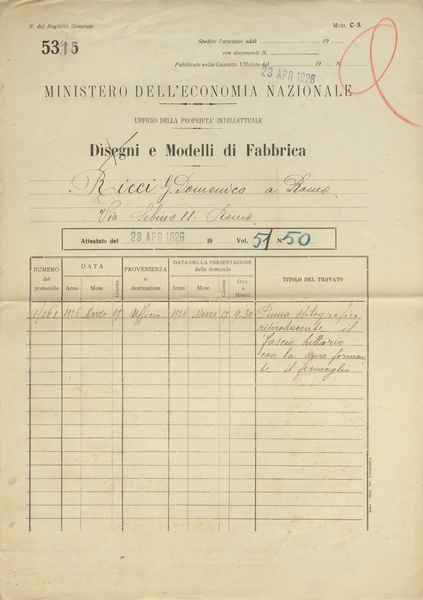 N. del Registro Generale
MOD. C-5.
5315
Spedito l'attestato addì 19
con documenti N.
Pubblicato nella Gazzetta Ufficiale del 19 N.
23 APR 1926
MINISTERO DELL'ECONOMIA NAZIONALE
UFFICIO DELLA PROPRIETA' INTELLETTUALE
Disegni e Modelli di Fabbrica
Ricci G. Domenico a Roma
Via Sebino 11 - Roma
Attestato del 23 APR 1926 19 Vol. 51 N. 50
NUMERO del protocollo
DATA
Anno Mese Giorno
PROVENIENZA e destinazione
DATA DELLA PRESENTAZIONE della domanda
Anno Mese Giorno Ora e Minuti
TITOLO DEL TROVATO
1/161 1926 Marzo 17 Ufficio 1926 Marzo 17 9,30 Penna stilografica
riproducente il
fascio littorio
con la scure forman
te il fermaglio